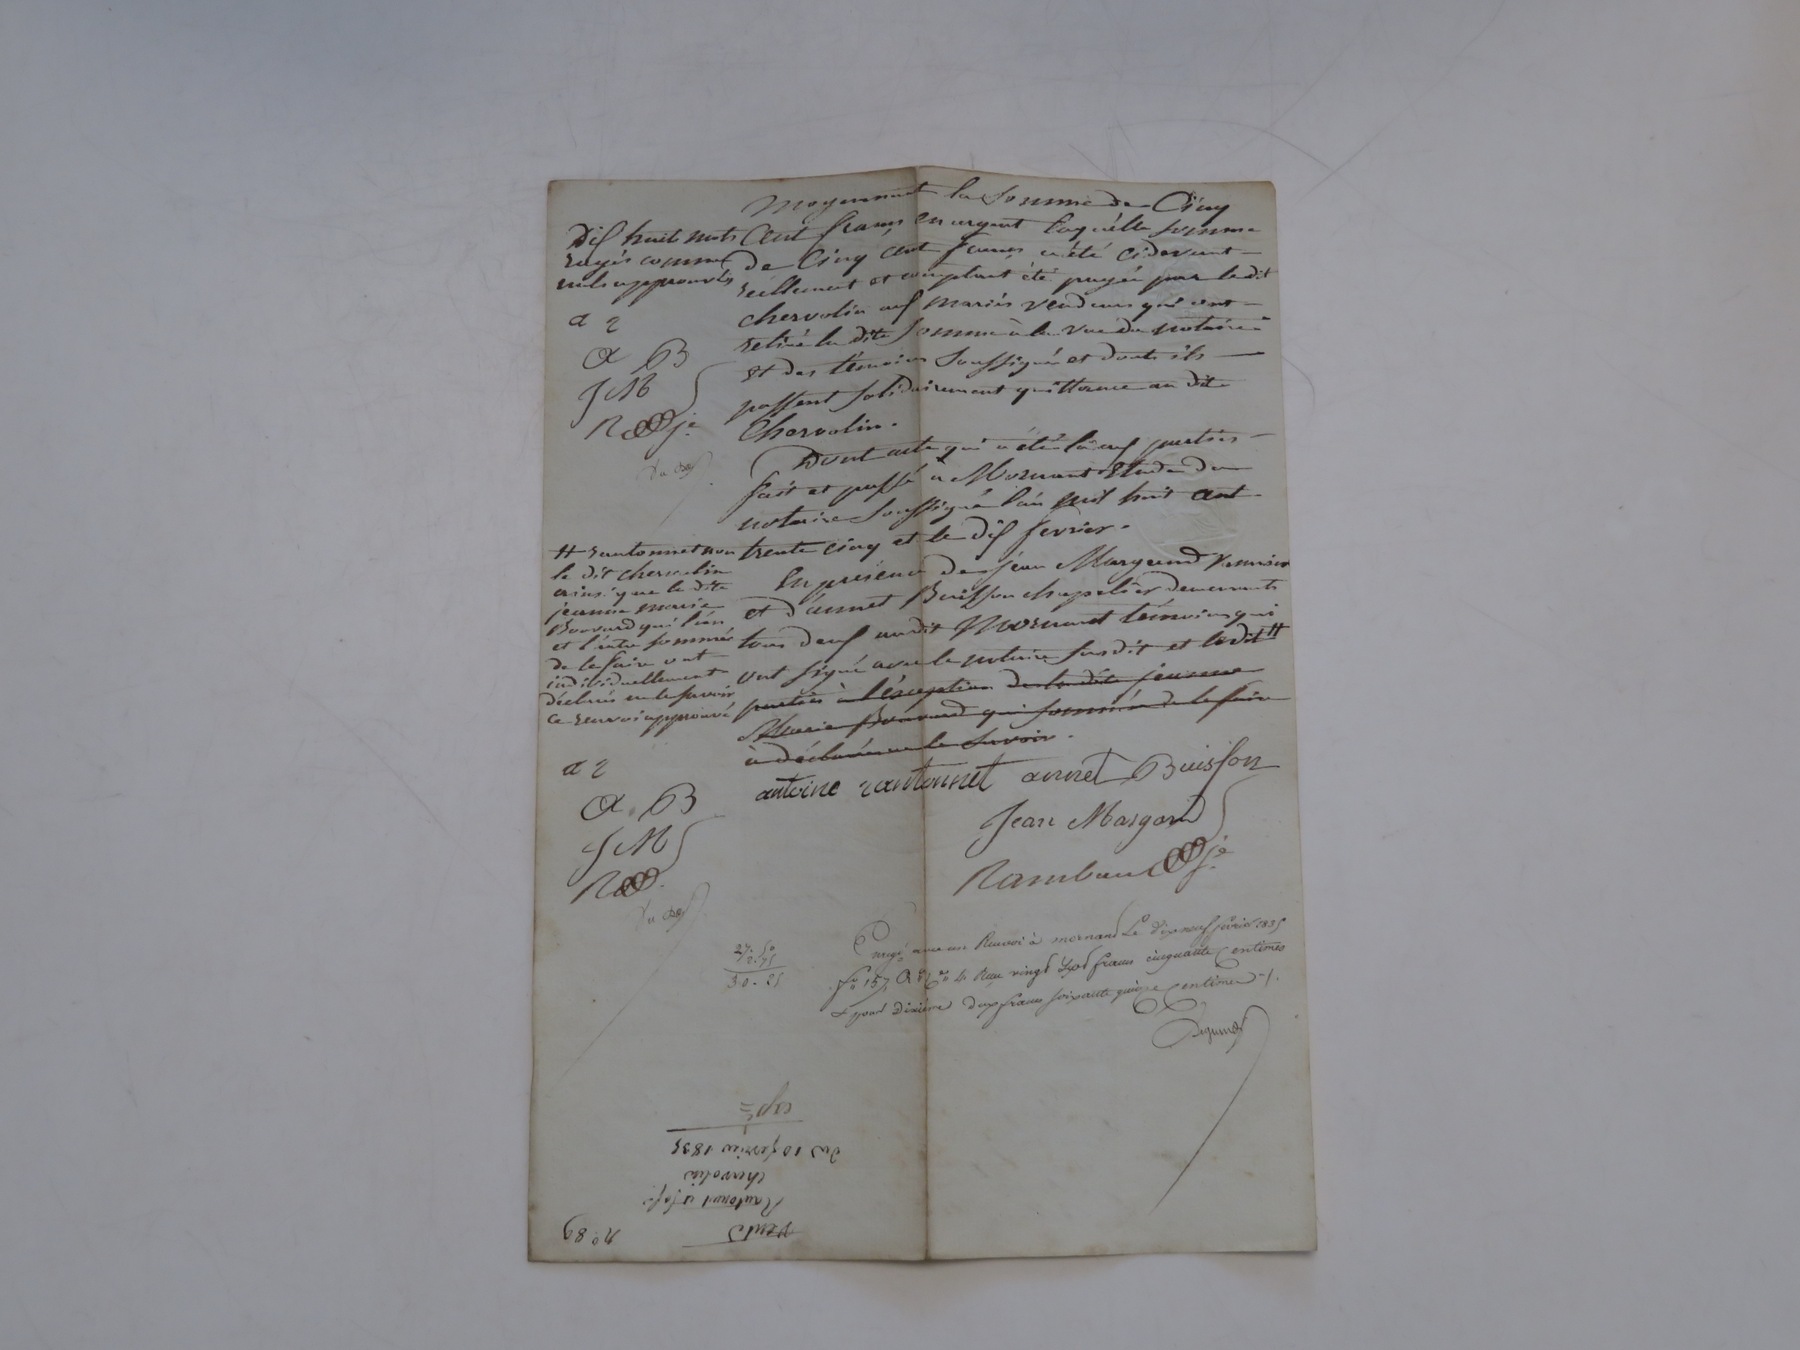 moyennant la somme de Cinq
Cent francs en argent laquelle somme
de Cinq cent francs a été cidevant
reellement et comptant été payée par le dit
chervolin aux mariés vendeurs qui ont
retiré la dite somme à la vue du notaire
et des témoins soussignés et dont ils
passent solidairement quittance au dit
Chervolin.
Dont acte qui a été lû aux parties
fait et passé à Mornant Etude du
notaire soussigné l'an mil huit cent
trente cinq et le dix fevrier.
En présence de jean Margand
et d'annet Buisson chapelier demeurants
tous deux au dit Mornant témoins qui
ont signé avec le notaire susdit et le dit #
parties à l'éxception de la dite jeanne
Marie Bonnard qui sommée de le faire
a déclaré ne le savoir.
Dix huit mots
rayés comme
nuls approuvés
a r
a B
J M
R je
# rantonnet non
le dit chervolin
ainsi que la dite
jeanne marie
qui l'un
et l'autre sommés
de le faire ont
individuellement
déclarés ne le savoir
ce renvoi approuvé
a r
a. B
J M
R
antoine rantonnet annet Buisson
Jean Margand
Rambau je
27. 50
2. 75
30 - 25
Enregé avec un Renvoi à mornant Le dix neuf fevrier 1835
fo 157 Ro Co 4 Reçu vingt sept francs cinquante Centimes
& pour Dixième deux francs soixante quinze Centimes ./.
no. 89
Vente
Rantonnet à jph
chervolin
du 10 fevrier 1835
exp =